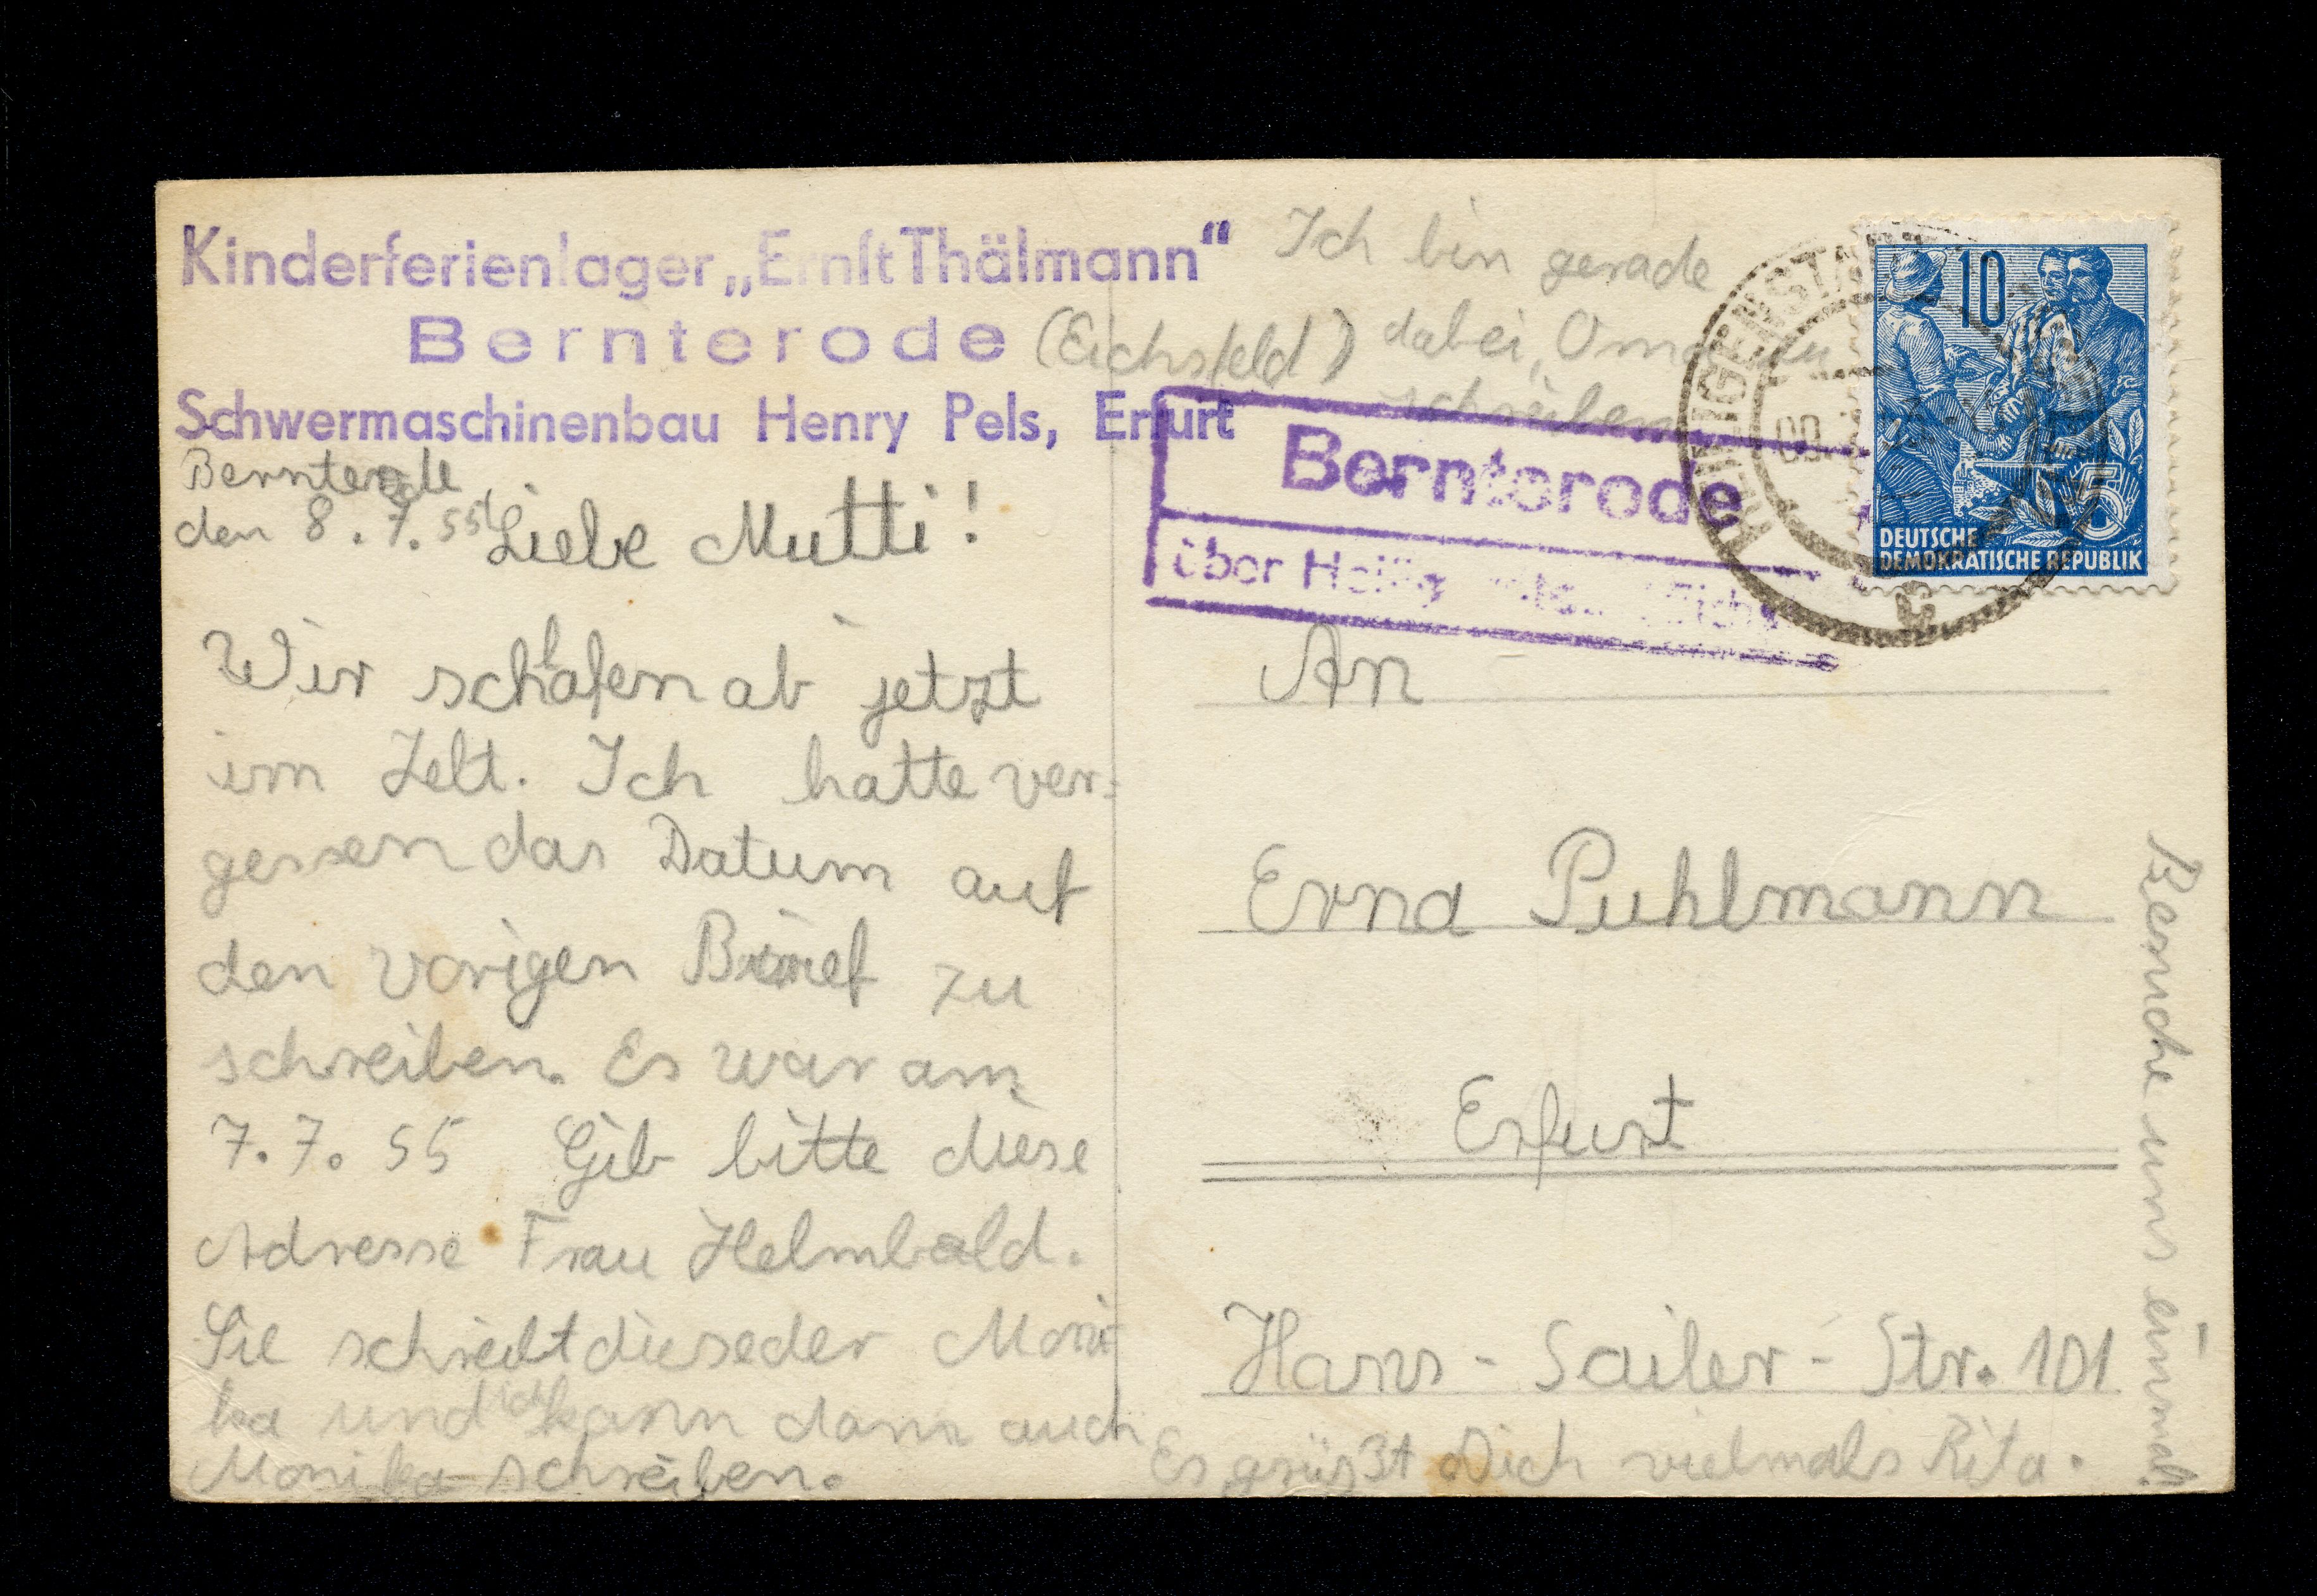 Kinderferienlager „Ernst Thälmann“
Bernterode (Eichsfeld)
Schwermaschinenbau Henry Pels, Erfurt
Bernterode
den 8.7.55
Liebe Mutti!
Wir schlafen ab jetzt
im Zelt. Ich hatte ver-
gessen das Datum auf
den vorigen Brief zu
schreiben. Es war am
7.7.55 Gib bitte diese
Adresse Frau Helmbold.
Sie schreibt dieseder Moni-
ka und ich kann dann auch
Monika schreiben.
Ich bin gerade
dabei, Oma zu
schreiben
Bernterode
über Heilig
HEILIGENSTADT
10
DEUTSCHE
DEMOKRATISCHE REPUBLIK
An
Erna Puhlmann
Erfurt
Hans-Sailer-Str. 101
Es grüsst Dich vielmals Rita.
Besuche uns einmal!